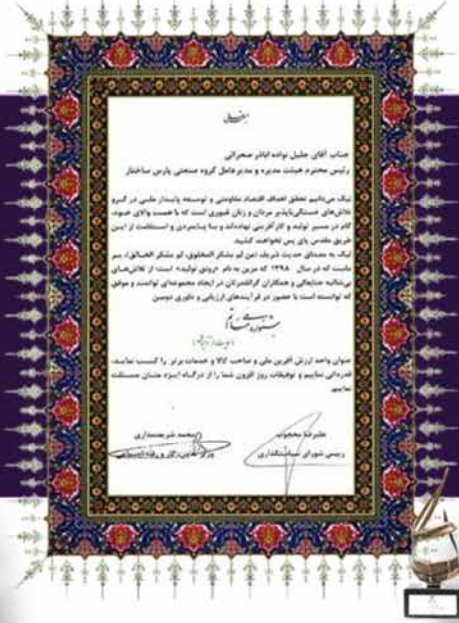 جناب آقای جلیل نواده اباذر صحرائی
رئیس محترم هیئت مدیره و مدیرعامل گروه صنعتی پارس ساختار
نیک می‌دانیم تحقق اهداف اقتصاد مقاومتی و توسعه پایدار ملی در گرو
تلاش‌های خستگی‌ناپذیر مردان و زنان غیوری است که با همت والای خود،
گام در مسیر تولید و کارآفرینی نهاده‌اند و با پایمردی و استقامت از این
طریق مقدس پای پس نخواهند کشید.
نیک به مصداق حدیث شریف (من لم یشکر المخلوق، لم یشکر الخالق)، بر
ماست که در سال ۱۳۹۸ که مزین به نام «رونق تولید» است؛ از تلاش‌های
بی‌شائبه جنابعالی و همکاران گرانقدرتان در ایجاد مجموعه‌ای توانمند و موفق
که توانسته است با حضور در فرآیندهای ارزیابی و داوری دومین
عنوان واحد ارزش آفرین ملی و صاحب کالا و خدمات برتر را کسب نماید،
قدردانی نماییم و توفیقات روز افزون شما را از درگاه ایزد منان مسئلت
نماییم.
علیرضا محجوب
رییس شورای سیاستگذاری
محمد شریعتمداری
وزیر تعاون، کار و رفاه اجتماعی